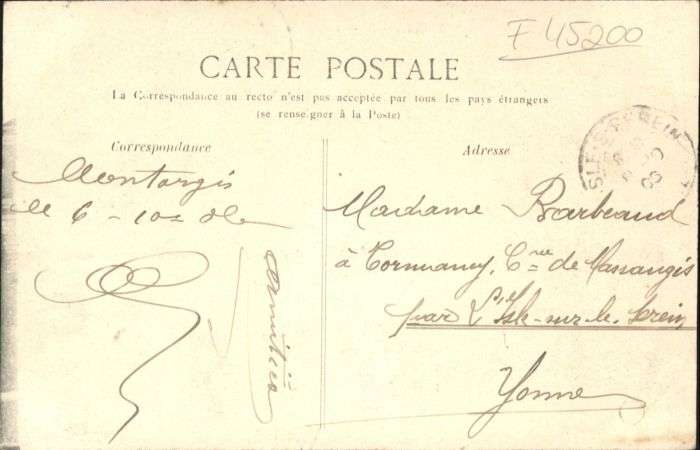 F 45200
CARTE POSTALE
La Correspondance au recto n'est pas acceptée par tous les pays étrangers
(se renseigner à la Poste)
Correspondance
Adresse
Montargis
le 6-10-
Amitiés
Madame Barbeaud
à Cormarcy, Cne de Massangis
par L'Isle-sur-le-Serein
Yonne